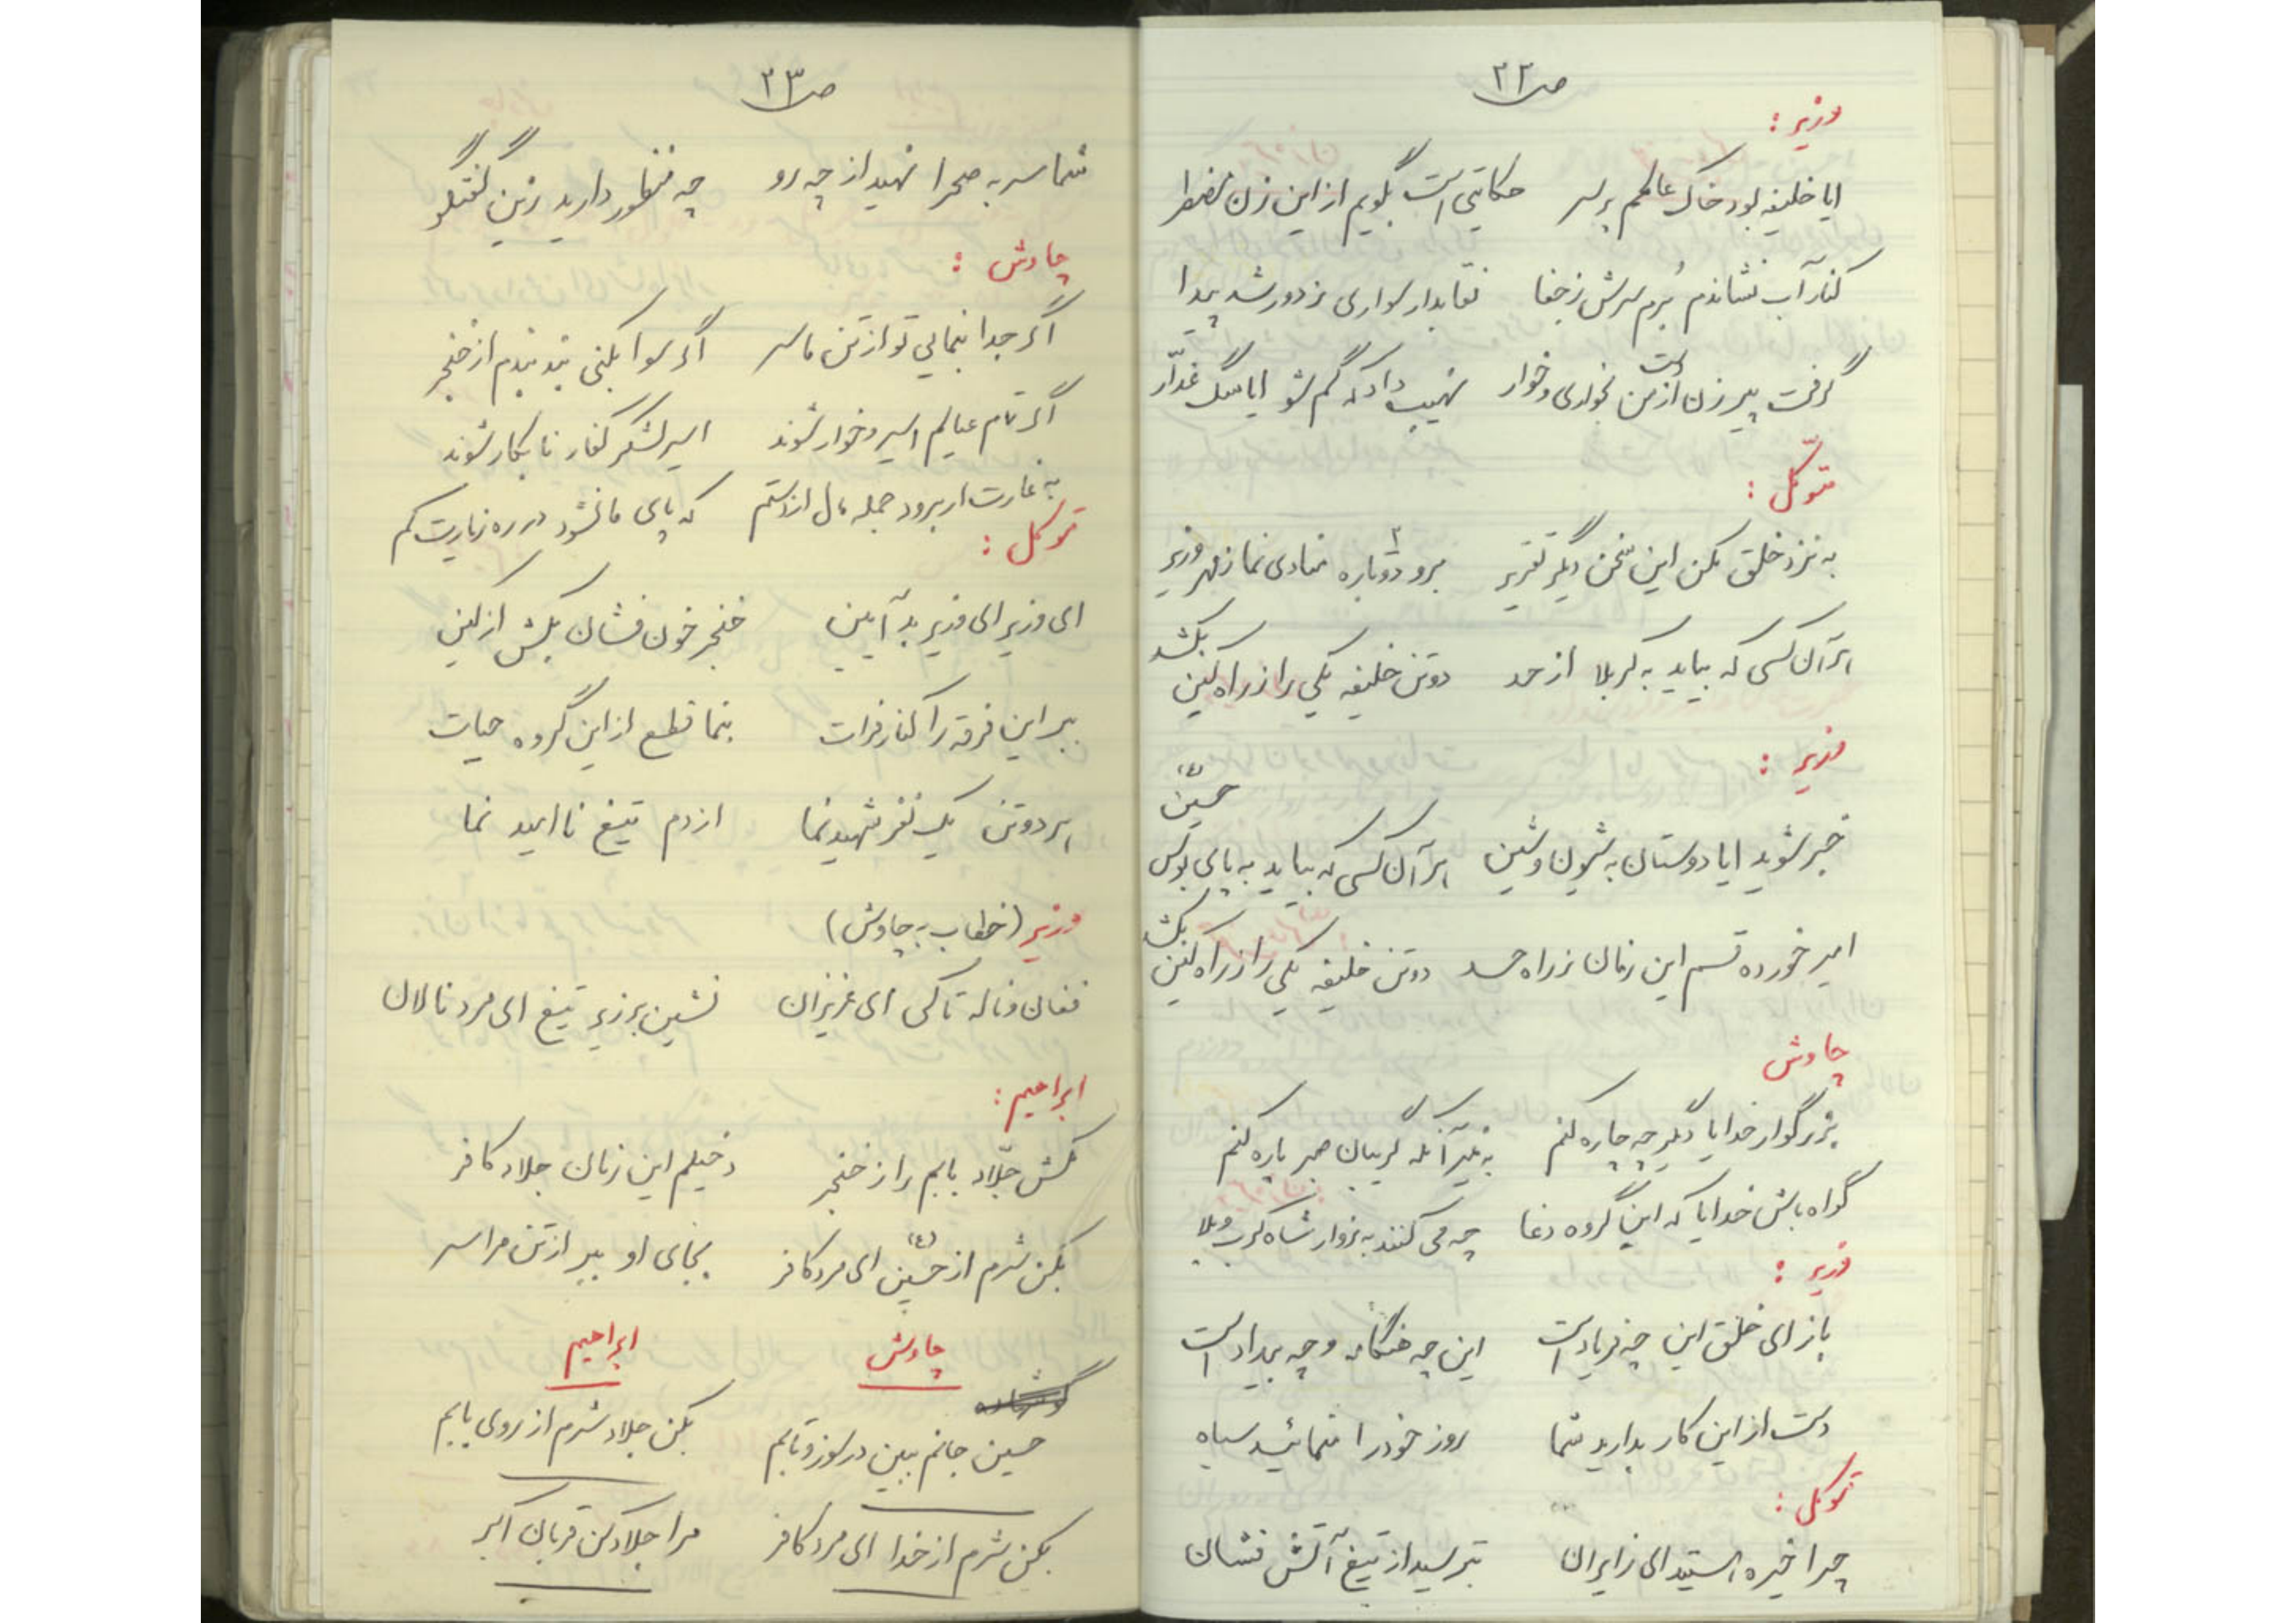 ص ۲۲
وزیر :
ایا خلیفه بود خاک عالمم بر سر    حکایتی است بگویم از این زن مضطر
کنار آب نشاندم بُرم سرش ز جفا    نقابدار سواری ز دور شد پیدا
گرفت پیر زن از دست من بخواری و خوار    نهیب داد که گم شو ایا سگ غدّار
متوکّل :
به نزد خلق بکن این سخن دیگر تقریر    برو دوباره منادی نما ز مهر وزیر
هر آن کسی که بیاید به کربلا از حد    دو تن خلیفه یکی را ز راه کین بکشد
وزیر :
خبر شوید ایا دوستان به شیون و شین    هر آن کسی که بیاید به پای بوس حسین (ع)
امیر خورده قسم این زمان ز راه حسد    دو تن خلیفه یکی را ز راه کین بکشد
چاوش
بزرگوار خدایا دگر چه چاره کنم    به غیر آنکه گریبان صبر پاره کنم
گواه باش خدایا که این گروه دغا    چه می کنند به زوار شاه کرب وبلا
وزیر :
باز ای خلق این چه فریاد است    این چه هنگامه و چه بیداد است
دست از این کار بدارید شما    روز خود را ننمائید سیاه
متوکل :
چرا خیره استید ای زایران    بترسید از تیغ آتش فشان
ص ۲۳
شما سر به صحرا نهید از چه رو    چه منظور دارید زین گفتگو
چاوش :
اگر جدا بنمایی تو از تن ما سر    اگر سوا بکنی بند بندم از خنجر
اگر تمام عیالم اسیر و خوار شوند    اسیر لشگر کفار نابکار شوند
به غارت ار برود جمله مال از دستم    که پای ما نشود در ره زیارت کم
متوکل :
ای وزیر ای وزیر بد آیین    خنجر خون فشان بکش از کین
ببر این فرقه را کنار فرات    بنما قطع از این گروه حیات
هر دو تن یک نفر شهید نما    از دم تیغ نا امید نما
وزیر (خطاب به چاوش)
فغان و ناله تا کی ای عزیزان    نشین بر زیر تیغ ای مرد نالان
ابراهیم :
مکش جلّاد بابم را ز خنجر    دخیلم این زمان جلاد کافر
بکن شرم از حسین (ع) ای مرد کافر    بجای او ببر از تن مرا سر
چاوش    ابراهیم
حسین جانم ببین در سوز و تابم    بکن جلاد شرم از روی بابم
بکن شرم از خدا ای مرد کافر    مرا جلاد کن قربان اکبر